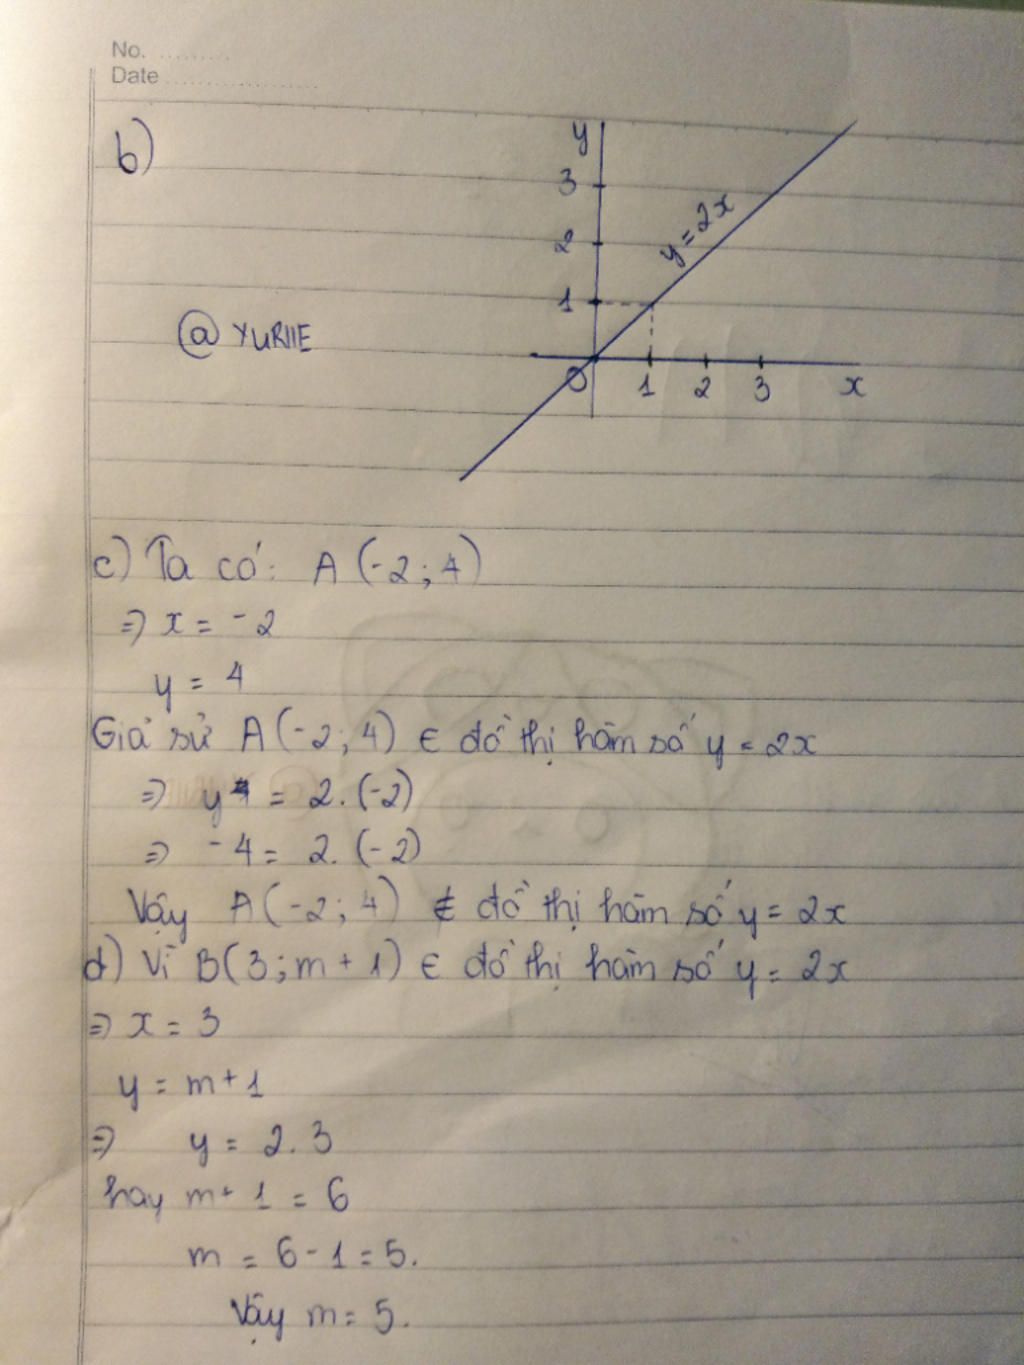 No.
Date
b)
y
3
2
1
y = 2x
O 1 2 3 x
@ YURIIE
c) Ta có: A (-2; 4)
=> x = -2
y = 4
Giả sử A (-2; 4) ∈ đồ thị hàm số y = 2x
=> y = 2. (-2)
=> -4 = 2. (-2)
Vậy A (-2; 4) ∉ đồ thị hàm số y = 2x
d) Vì B(3; m + 1) ∈ đồ thị hàm số y = 2x
=> x = 3
y = m + 1
=> y = 2. 3
hay m + 1 = 6
m = 6 - 1 = 5.
Vậy m = 5.